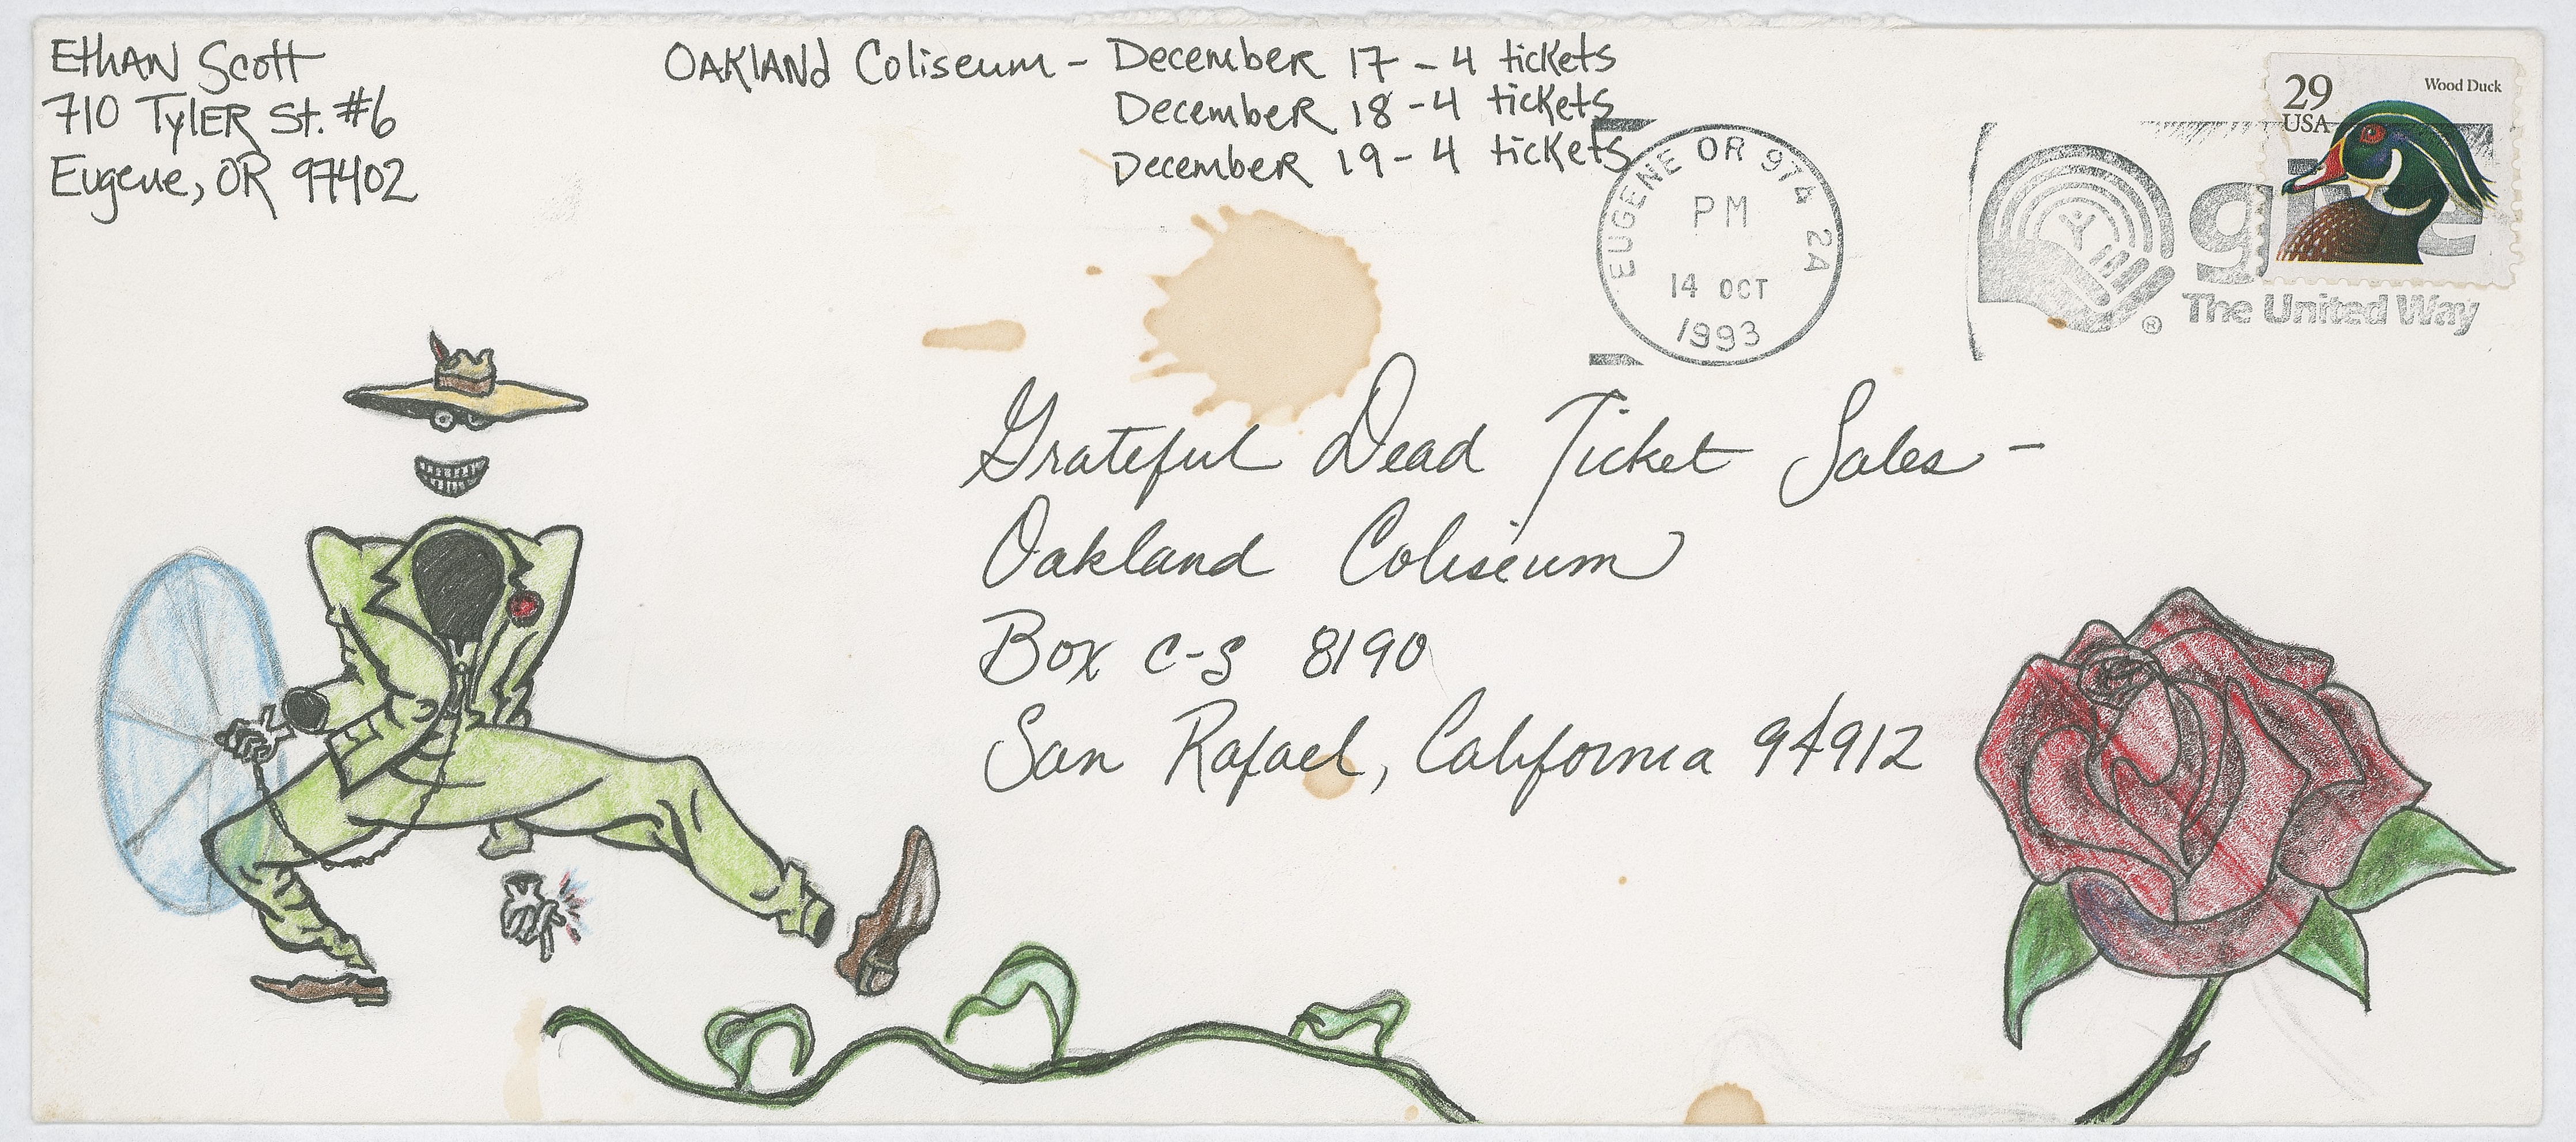 Ethan Scott
710 Tyler St. #6
Eugene, OR 97402
Oakland Coliseum - December 17 - 4 tickets
December 18 - 4 tickets
December 19 - 4 tickets
EUGENE OR 974 2A
PM
14 OCT
1993
give
The United Way
®
29
USA
Wood Duck
Grateful Dead Ticket Sales -
Oakland Coliseum
Box C-S 8190
San Rafael, California 94912